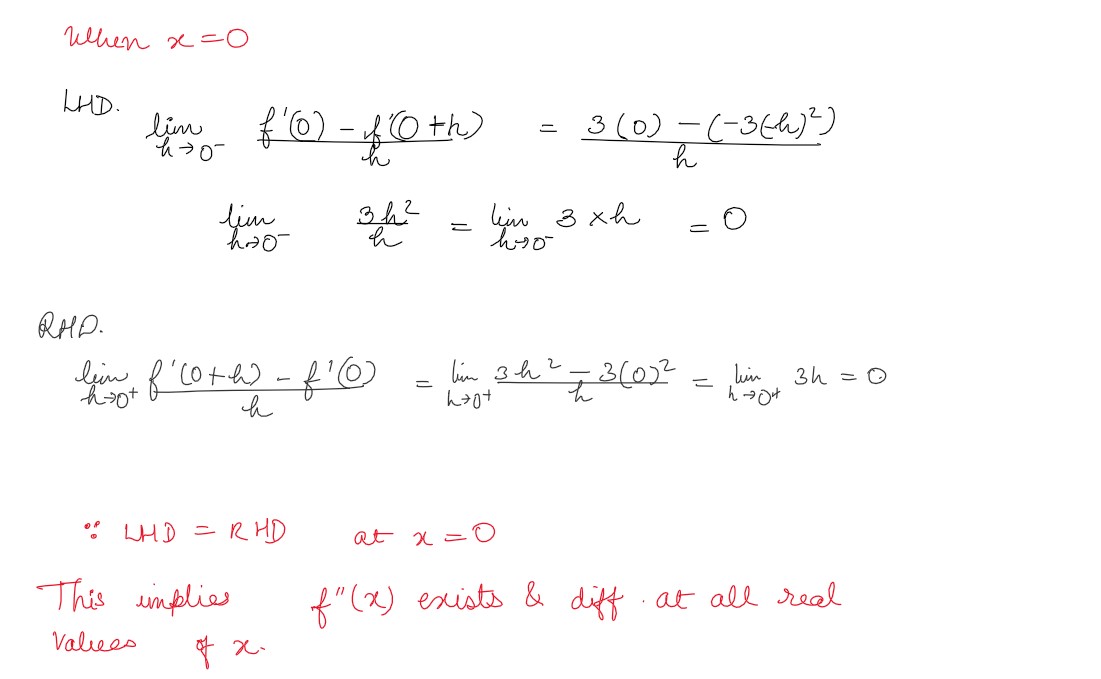 When x = 0
LHD.
lim h→0⁻ f'(0) - f'(0+h) / h = 3(0) - (-3(-h)²) / h
lim h→0⁻ 3h² / h = lim h→0⁻ 3 × h = 0
RHD.
lim h→0⁺ f'(0+h) - f'(0) / h = lim h→0⁺ 3h² - 3(0)² / h = lim h→0⁺ 3h = 0
∵ LHD = RHD at x = 0
This implies f"(x) exists & diff. at all real
values of x.